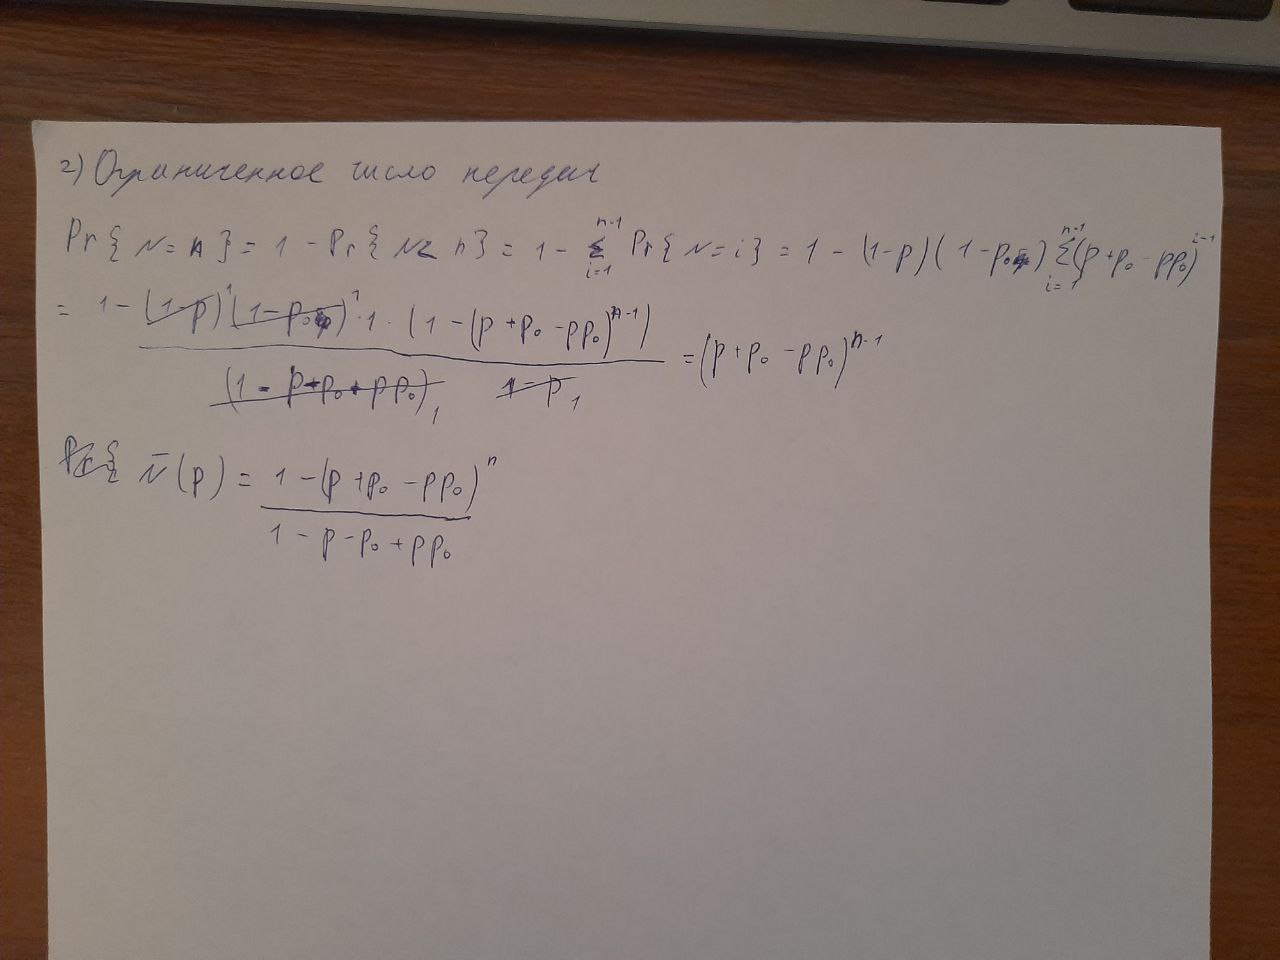 2) Ограниченное число передач
Pr{N=n} = 1 - Pr{N< n} = 1 - Σ_{i=1}^{n-1} Pr{N=i} = 1 - (1-p)(1-p₀) Σ_{i=1}^{n-1} (p+p₀-pp₀)^{i-1}
= 1 - (1-p)^1 (1-p₀)^1 · 1 · (1-(p+p₀-pp₀)^{n-1}) / (1-p-p₀+pp₀)_1 1-p_1 = (p+p₀-pp₀)^{n-1}
N̄(p) = 1-(p+p₀-pp₀)^n / 1-p-p₀+pp₀